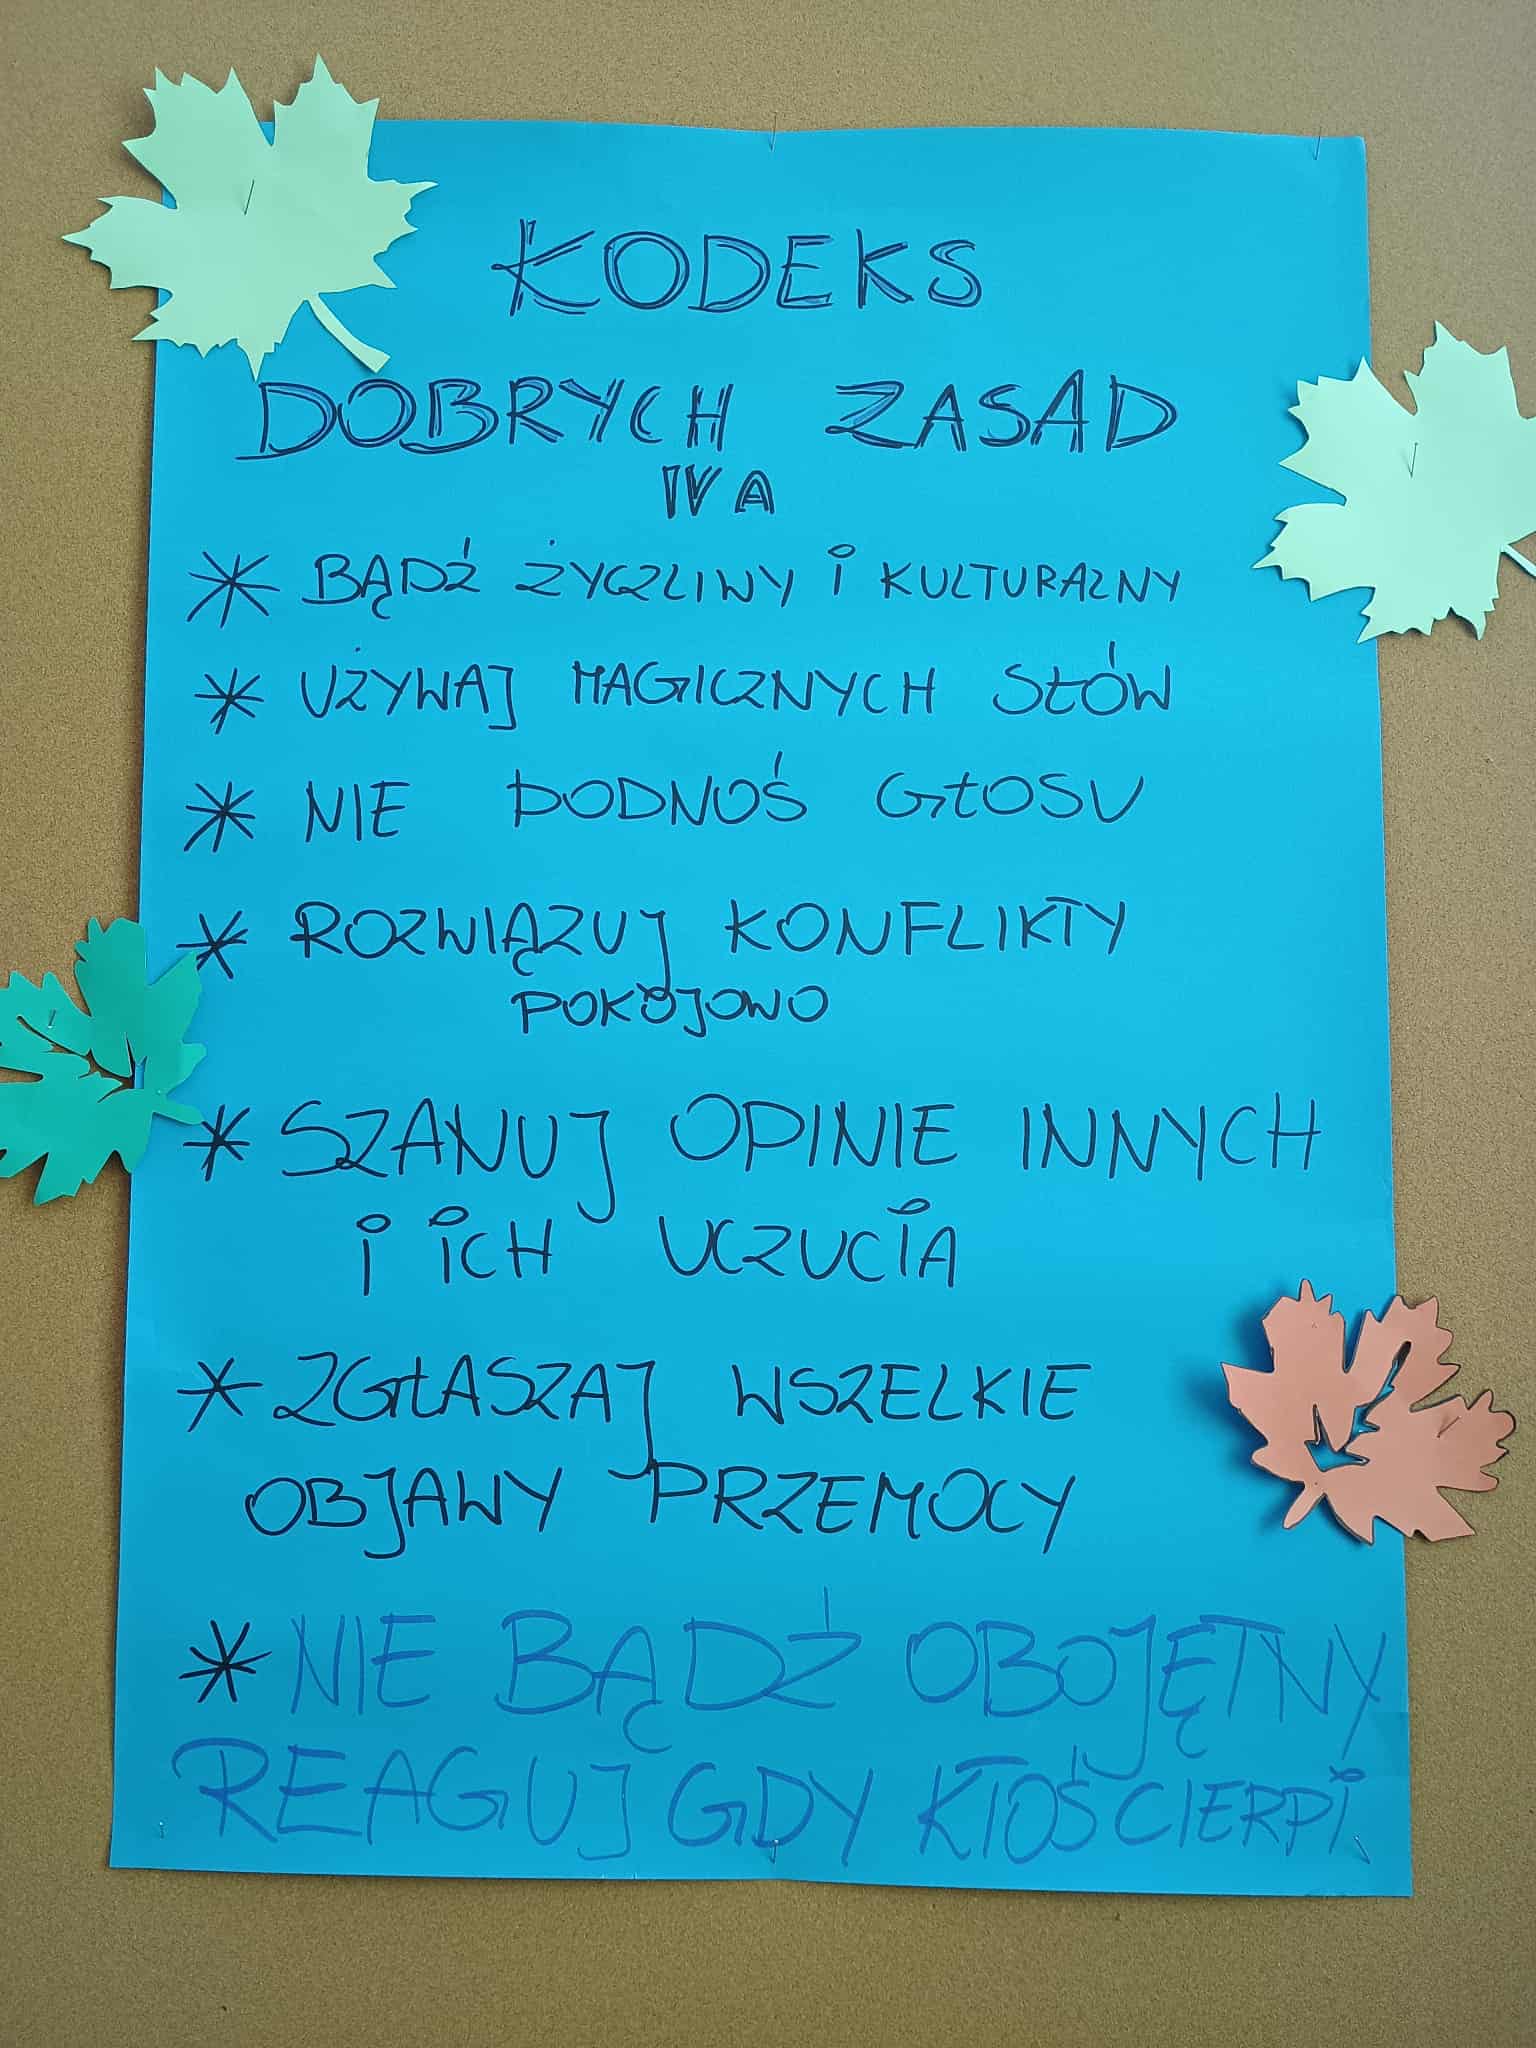 KODEKS
DOBRYCH ZASAD
IV A
* BĄDŹ ŻYCZLIWY i KULTURALNY
* UŻYWAJ MAGICZNYCH SŁÓW
* NIE PODNOŚ GŁOSU
* ROZWIĄZUJ KONFLIKTY
POKOJOWO
* SZANUJ OPINIE INNYCH
i iCH UCZUCiA
* ZGŁASZAJ WSZELKIE
OBJAWY PRZEMOCY
* NIE BĄDŹ OBOJĘTNY
REAGUJ GDY KTOŚ CIERPi.